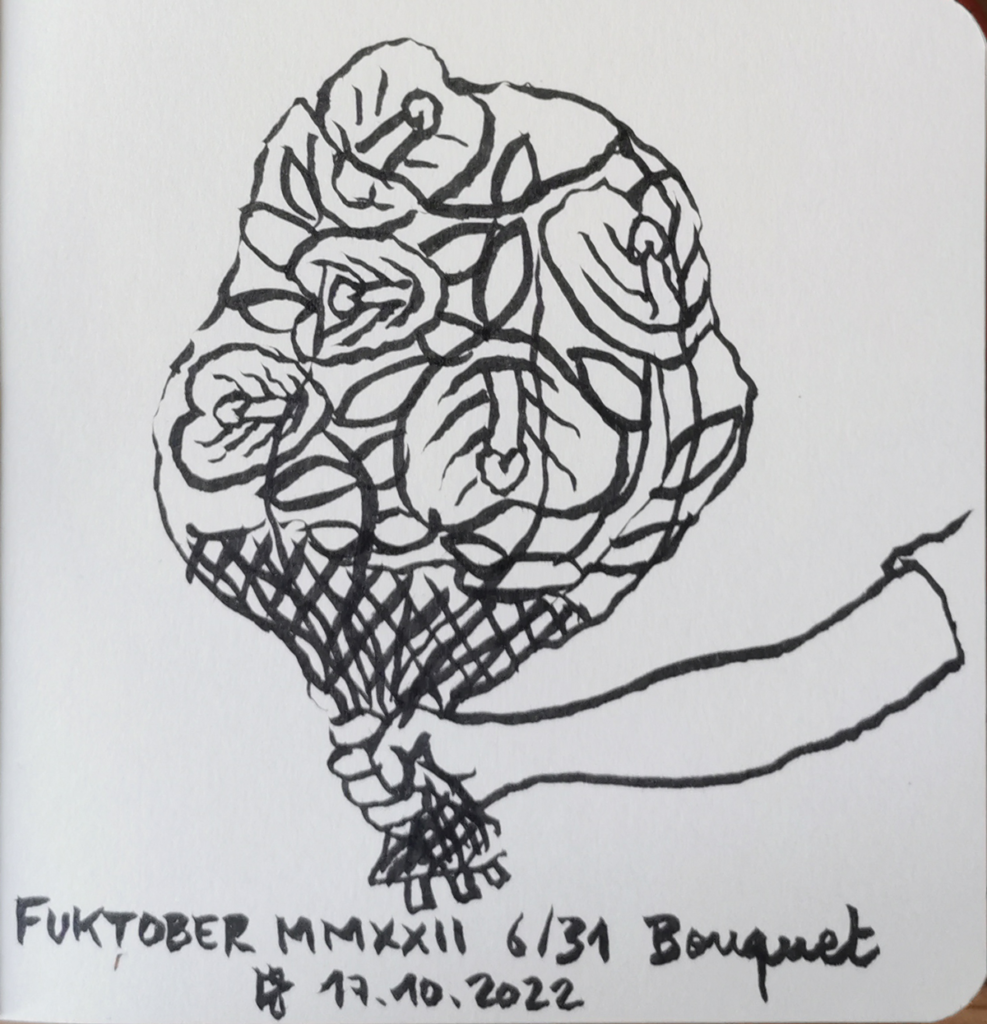 FUKTOBER MMXXII 6/31 Bouquet
17.10.2022